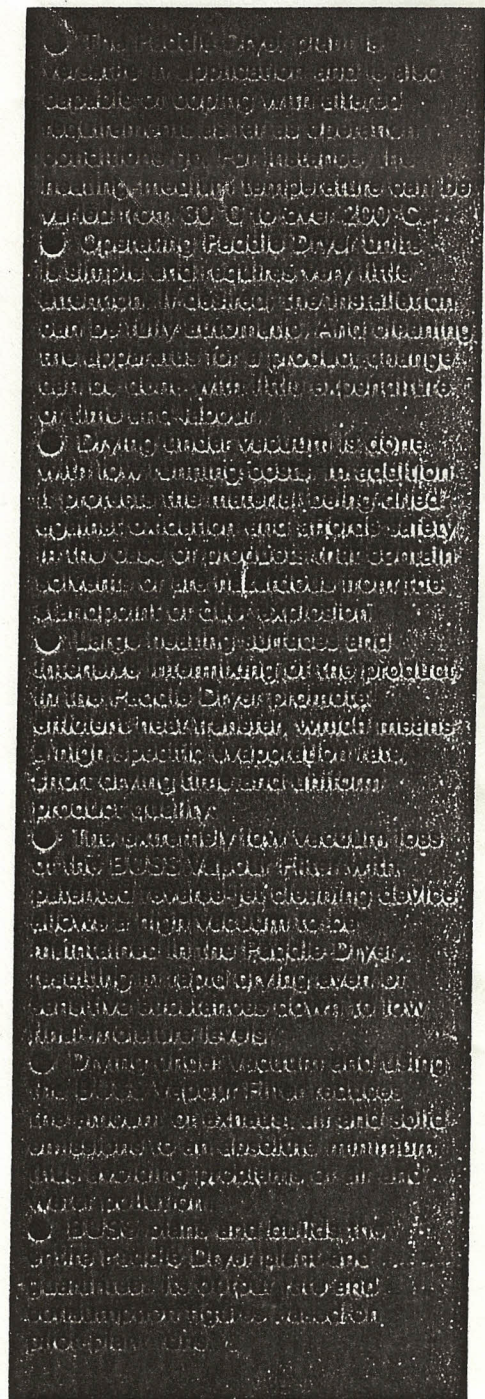 ● The Paddle Dryer plant is
versatile in application and is also
capable of coping with altered
requirements as far as operation
conditions go. For instance, the
heating-medium temperature can be
varied from 30°C to over 200°C.
● Operating Paddle Dryer units
is simple and requires very little
attention. If desired, the installation
can be fully automatic. And cleaning
the apparatus for a product change
can be done with little expenditure
of time and labour.
● Drying under vacuum is done
with low running costs. In addition
it protects the material being dried
against oxidation and affords safety
in the case of products that contain
solvents or are hazardous from the
standpoint of dust explosion.
● Large heating surfaces and
intensive intermixing of the product
in the Paddle Dryer promote
efficient heat transfer, which means
a high specific evaporation rate,
short drying time and uniform
product quality.
● The extremely low vacuum loss
of the BUSS Vapour Filter with
patented reverse-jet cleaning device
allows a high vacuum to be
maintained in the Paddle Dryer,
resulting in rapid drying even of
sensitive substances down to low
final-moisture levels.
● Drying under vacuum and using
the BUSS Vapour Filter reduces
the amount of exhaust air and solid
emissions to an absolute minimum,
thus avoiding problems of air and
water pollution.
● BUSS plans and builds the
entire Paddle Dryer plant and
guarantees its output rate and
consumption figures based on
pilot-plant tests.